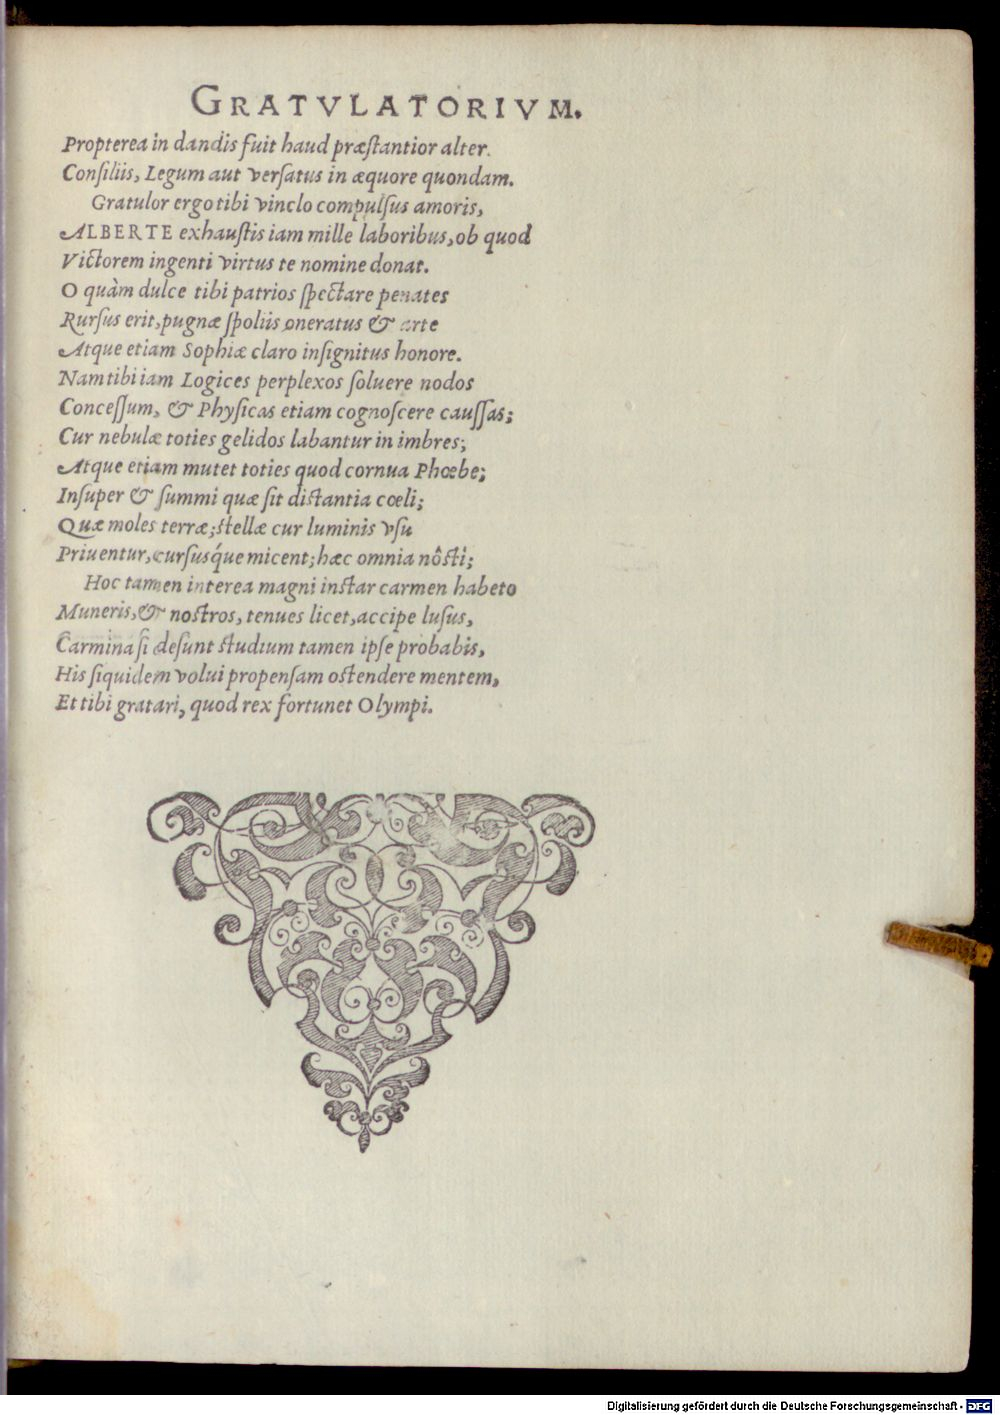 GRATVLATORIVM.
Propterea in dandis fuit haud præſtantior alter.
Conſiliis, Legum aut verſatus in æquore quondam.
Gratulor ergo tibi vinclo compulſus amoris,
ALBERTE exhauſtis iam mille laboribus, ob quod
Victorem ingenti virtus te nomine donat.
O quàm dulce tibi patrios ſpectare penates
Rurſus erit, pugnæ ſpoliis oneratus & arte
Atque etiam Sophiæ claro inſignitus honore.
Nam tibi iam Logices perplexos ſoluere nodos
Conceſſum, & Phyſicas etiam cognoſcere cauſſas;
Cur nebulæ toties gelidos labantur in imbres;
Atque etiam mutet toties quod cornua Phœbe;
Inſuper & ſummi quæ ſit diſtantia cœli;
Quæ moles terræ; ſtellæ cur luminis vſu
Priuentur, curſusq́ue micent; hæc omnia nôſti;
Hoc tamen interea magni inſtar carmen habeto
Muneris, & noſtros, tenues licet, accipe luſus,
Carmina ſi deſunt ſtudium tamen ipſe probabis,
His ſiquidem volui propenſam oſtendere mentem,
Et tibi gratari, quod rex fortunet Olympi.
Digitalisierung gefördert durch die Deutsche Forschungsgemeinschaft - DFG